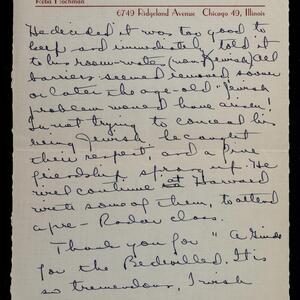 Reba Hochman
6749 Ridgeland Avenue Chicago 49, Illinois
He decided it was too good to
keep and immediately told it
to his room-mates (non Jewish) All
barriers seemed removed sooner
or later the age-old "Jewish
problem would have arisen!
In not trying to conceal his
being Jewish he caught
their respect, and a fine
friendship sprang up. He
will continue at Harvard
with some of them, to attend
a pre-Radar class.
Thank you for "A Guide
for the Bedevilled. It is
so tremendous, I wish